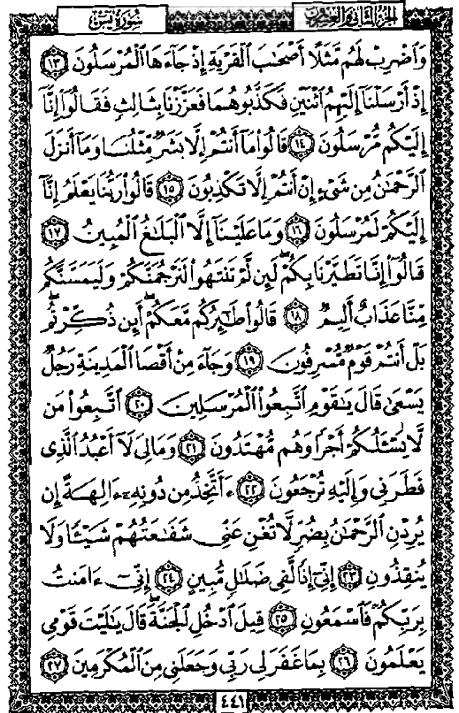 الجزء الثاني والعشرون
سورة يس
وَاضْرِبْ لَهُم مَّثَلًا أَصْحَابَ الْقَرْيَةِ إِذْ جَاءَهَا الْمُرْسَلُونَ ١٣
إِذْ أَرْسَلْنَا إِلَيْهِمُ اثْنَيْنِ فَكَذَّبُوهُمَا فَعَزَّزْنَا بِثَالِثٍ فَقَالُوا إِنَّا
إِلَيْكُم مُّرْسَلُونَ ١٤ قَالُوا مَا أَنتُمْ إِلَّا بَشَرٌ مِّثْلُنَا وَمَا أَنزَلَ
الرَّحْمَٰنُ مِن شَيْءٍ إِنْ أَنتُمْ إِلَّا تَكْذِبُونَ ١٥ قَالُوا رَبُّنَا يَعْلَمُ إِنَّا
إِلَيْكُمْ لَمُرْسَلُونَ ١٦ وَمَا عَلَيْنَا إِلَّا الْبَلَاغُ الْمُبِينُ ١٧
قَالُوا إِنَّا تَطَيَّرْنَا بِكُمْ ۖ لَئِن لَّمْ تَنتَهُوا لَنَرْجُمَنَّكُمْ وَلَيَمَسَّنَّكُم
مِّنَّا عَذَابٌ أَلِيمٌ ١٨ قَالُوا طَائِرُكُم مَّعَكُمْ ۚ أَئِن ذُكِّرْتُم ۚ
بَلْ أَنتُمْ قَوْمٌ مُّسْرِفُونَ ١٩ وَجَاءَ مِنْ أَقْصَا الْمَدِينَةِ رَجُلٌ
يَسْعَىٰ قَالَ يَا قَوْمِ اتَّبِعُوا الْمُرْسَلِينَ ٢٠ اتَّبِعُوا مَن
لَّا يَسْأَلُكُمْ أَجْرًا وَهُم مُّهْتَدُونَ ٢١ وَمَا لِيَ لَا أَعْبُدُ الَّذِي
فَطَرَنِي وَإِلَيْهِ تُرْجَعُونَ ٢٢ أَأَتَّخِذُ مِن دُونِهِ آلِهَةً إِن
يُرِدْنِ الرَّحْمَٰنُ بِضُرٍّ لَّا تُغْنِ عَنِّي شَفَاعَتُهُمْ شَيْئًا وَلَا
يُنقِذُونِ ٢٣ إِنِّي إِذًا لَّفِي ضَلَالٍ مُّبِينٍ ٢٤ إِنِّي آمَنتُ
بِرَبِّكُمْ فَاسْمَعُونِ ٢٥ قِيلَ ادْخُلِ الْجَنَّةَ ۖ قَالَ يَا لَيْتَ قَوْمِي
يَعْلَمُونَ ٢٦ بِمَا غَفَرَ لِي رَبِّي وَجَعَلَنِي مِنَ الْمُكْرَمِينَ ٢٧
٤٤١